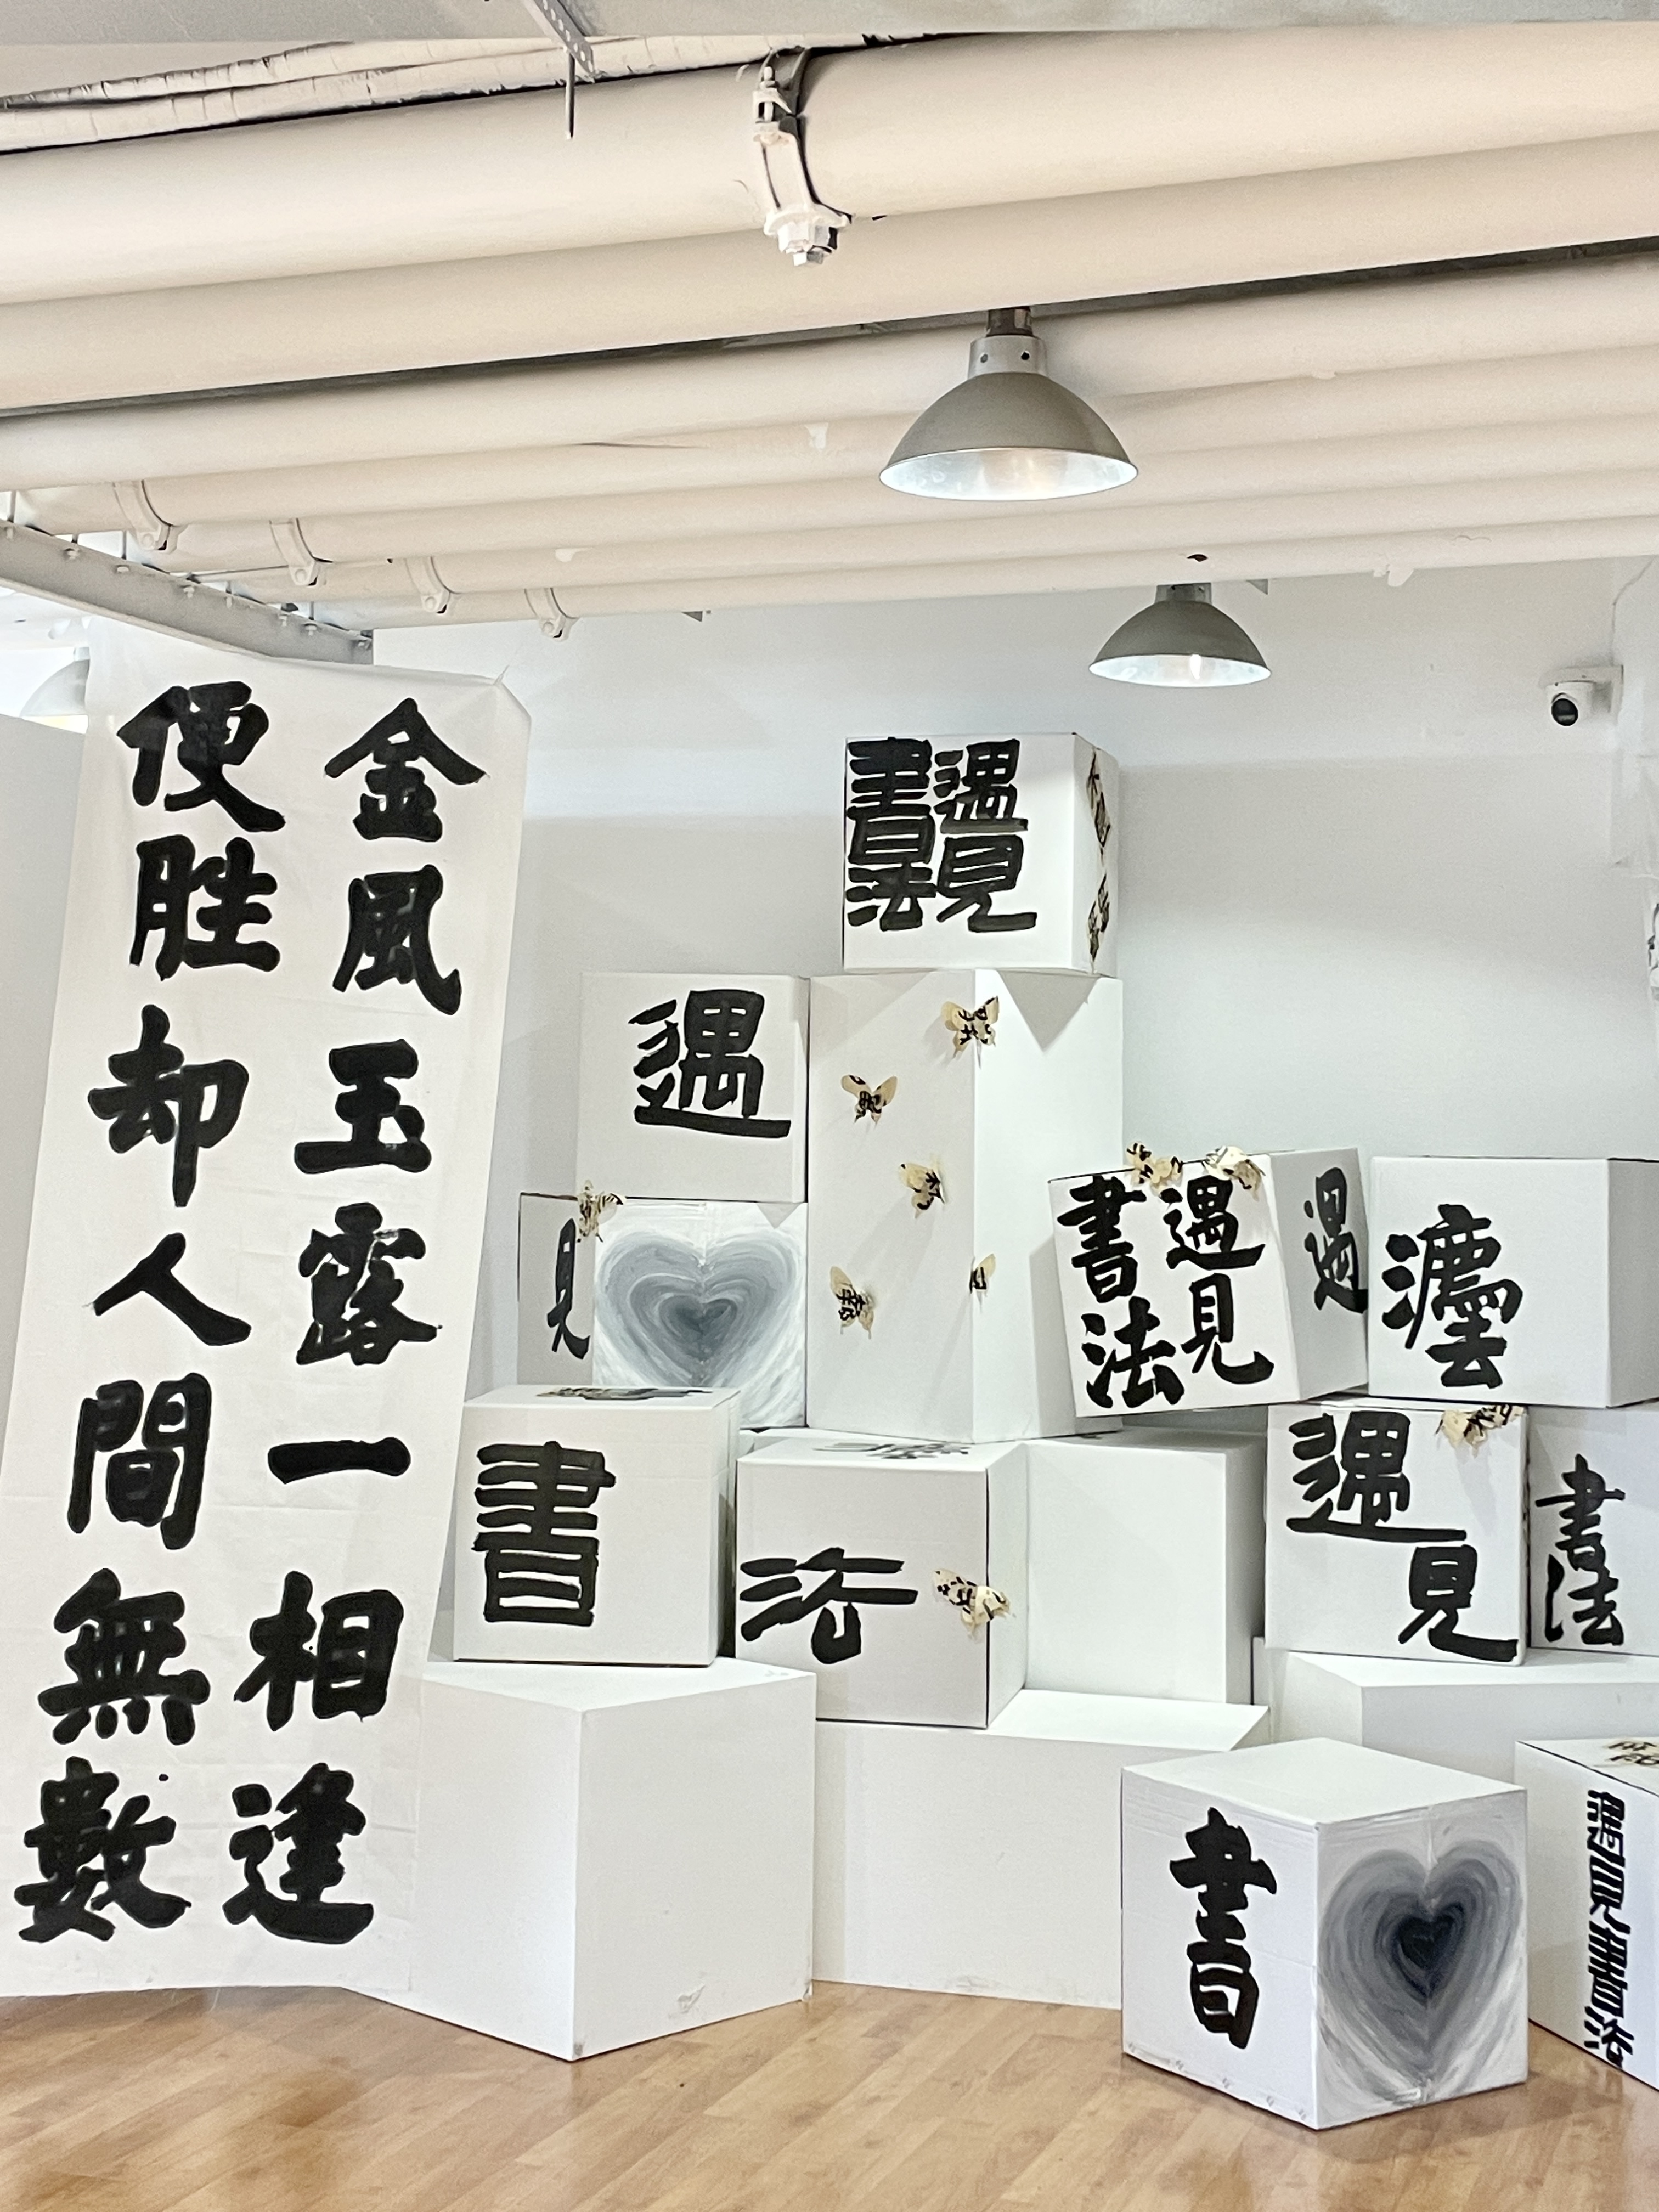 金風玉露一相逢
便胜却人間無數
遇見
書法
遇
見
書
法
遇見
書法
遇
遇
見
書法
書
遇見書法